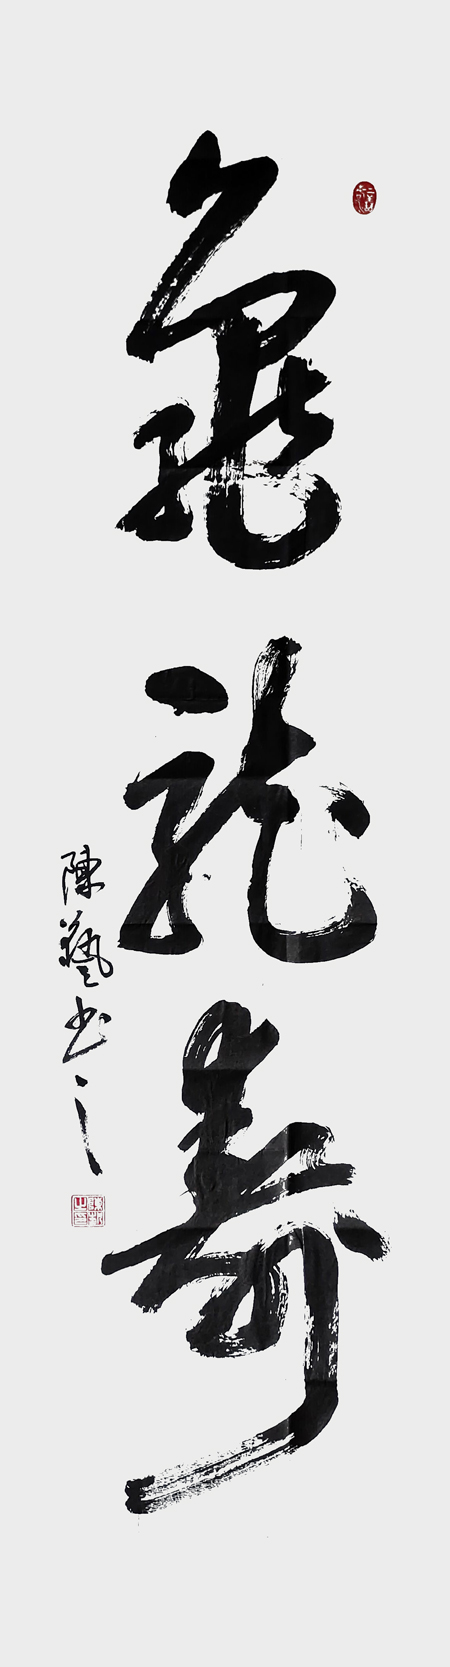 龜龍壽
陳藝书之